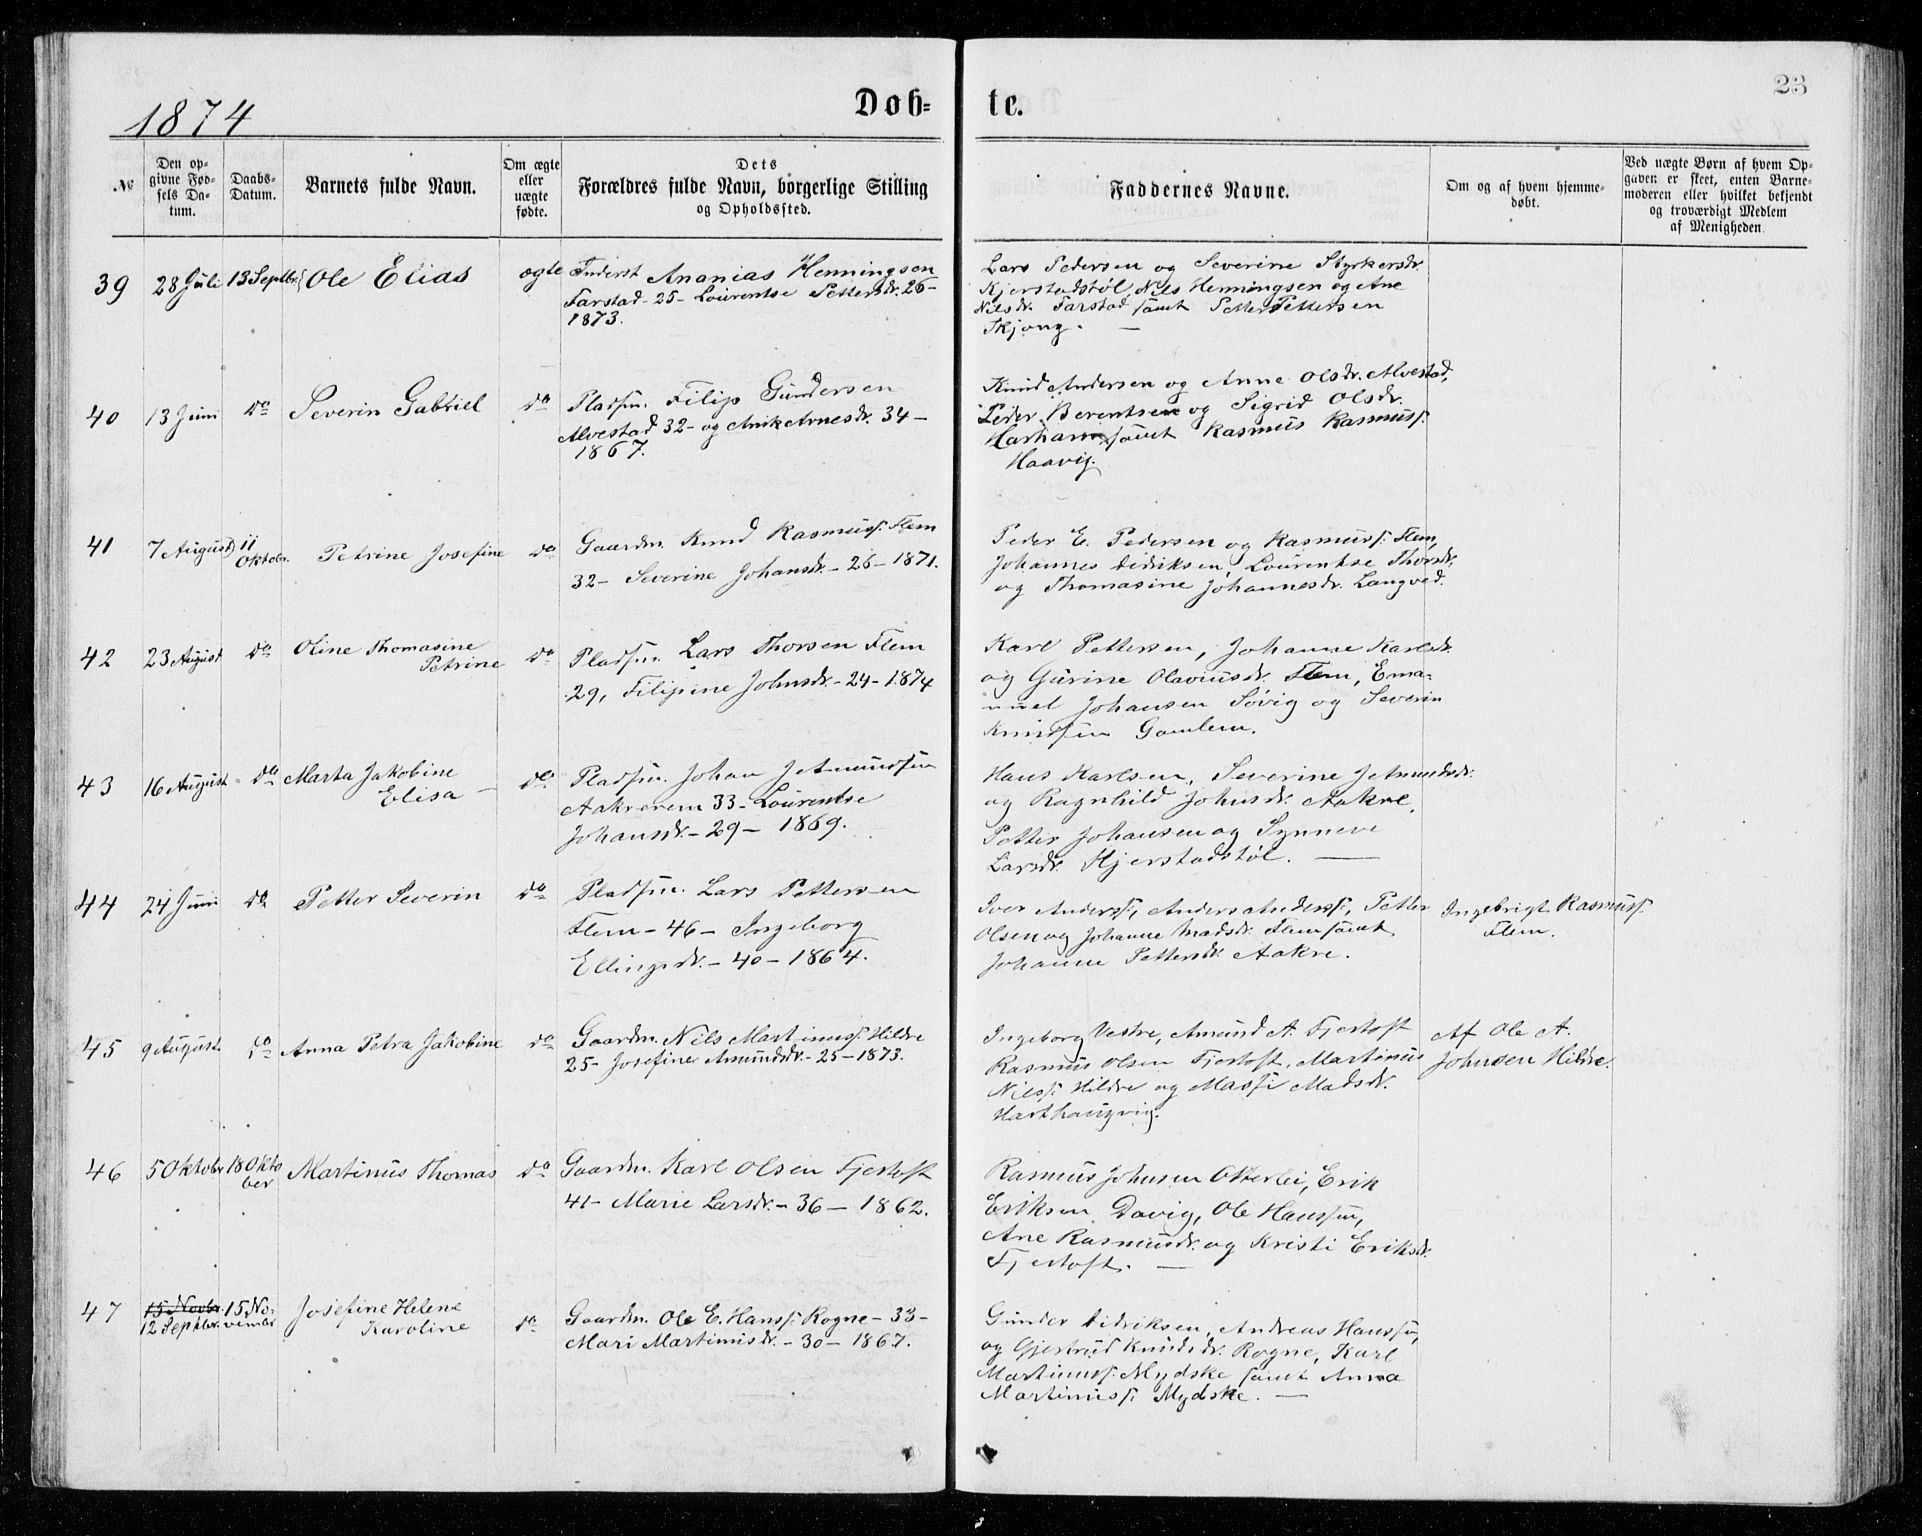 1874
Døb-
te.
23
№
Den op-
givne Fød-
sels Da-
tum.
Daabs-
Datum.
Barnets fulde Navn.
Om ægte
eller
uægte
fødte.
Dets
Forældres fulde Navn, borgerlige Stilling
og Opholdssted.
Faddernes Navne.
Om og af hvem hjemme-
døbt.
Ved uægte Børn af hvem Op-
gaven er skeet, enten Barne-
moderen eller hvilket bekjendt
og troværdigt Medlem
af Menigheden.
39
28 Juli
13 Septbr.
Ole Elias
ægte
Inderst Ananias Henningsen
Farstad - 25 - Lourentse Pettersdr. 26 -
1873.
Lars Pedersen og Severine Styrkersdr.
Kjerstadstøl, Nils Henningsen og Ane
Nilsdr. Farstad samt Petter Pettersen
Skjong. -
40
13 Juni
do
Severin Gabriel
do
Pladsm. Filip Gundersen
Alvestad 32 - og Anik Arnesdr. 34 -
1867.
Knud Andersen og Anne Olsdr. Alvestad,
Peder Berentsen og Sigrid Olsdr.
Harham samt Rasmus Rasmuss.
Haavig.
41
7 August
11
Oktobr.
Petrine Josefine
do
Gaardm. Knud Rasmuss. Flem
32 - Severine Johansdr. - 26 - 1871.
Peder E. Pedersen og Rasmuss. Flem,
Johannes Didriksen, Lourentse Thorsdr.
og Thomasine Johannesdr. Langved.
42
23 August
do
Oline Thomasine
Petrine
do
Pladsm. Lars Thorsen Flem
29, Filipine Johnsdr. - 24 - 1874
Karl Pettersen, Johanne Karlsdr.
og Gurine Olaviusdr. Flem, Ema-
nuel Johansen Søvig og Severin
Knudsen Gamlem.
43
16 August
do
Marta Jakobine
Elisa -
do
Pladsm. Johan J Amundsen
Aakrerem 33 - Lourentse
Johansdr. - 29 - 1869.
Hans Karlsen, Severine J Amundsdr.
og Ragnhild Johnsdr. Aakre,
Petter Johansen og Synneve
Larsdr. Kjerstadstøl. -
44
24 Juni
do
Petter Severin
do
Pladsm. Lars Pettersen
Flem - 46 - Ingeborg
Ellingsdr. - 40 - 1864.
Iver Anderss., Anders Anderss., Petter
Olsen og Johanne Madsdr. Flem samt
Johanne Pettersdr. Aakre.
Ingebrigt Rasmuss.
Flem.
45
9 August
do
Anna Petra Jakobine
do
Gaardm. Nils Martinuss. Hildre
25 - Josefine Amundsdr. - 25 - 1873.
Ingeborg Vestre, Amund A. Fjertoft
Rasmus Olsen Fjertoft, Martinus
Nilss. Hildre og Massi Madsdr.
Harthaugvig.
Af Ole A.
Johnsen Hildre.
46
5 Oktobr
18 Okto
ber
Martinus Thomas
do
Gaardm. Karl Olsen Fjertoft
41 - Marie Larsdr. - 36 - 1862.
Rasmus Johnsen Otterlei, Erik
Eriksen Davig, Ole Hanssen,
Ane Rasmusdr. og Kristi Eriksdr.
Fjertoft. -
47
15 Novbr.
12 Septbr.
15 No-
vember
Josefine Helene
Karoline
do
Gaardm. Ole E. Hanss. Rogne - 33 -
Mari Martinusdr. - 30 - 1867.
Gunder Didriksen, Andreas Hanssen,
og Gjertrud Knudsdr. Rogne, Karl
Martinuss. Mydske samt Anna
Martinuss. Mydske. -